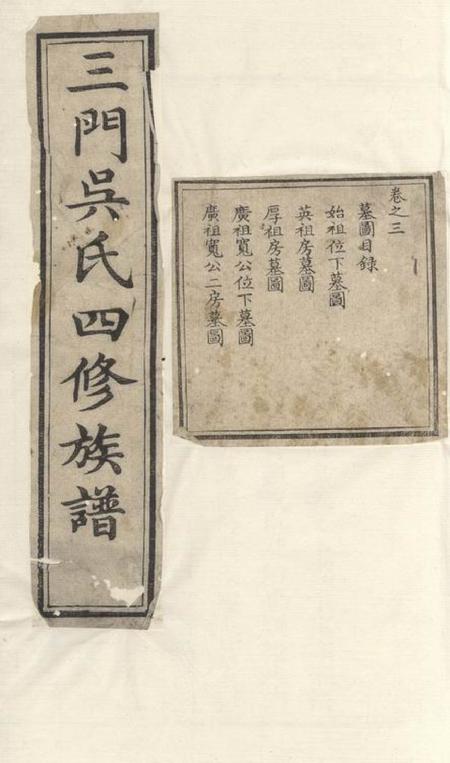 三門吳氏四修族譜
卷之三
墓圖目錄
始祖位下墓圖
英祖房墓圖
厚祖房墓圖
廣祖寬公位下墓圖
廣祖寬公二房墓圖